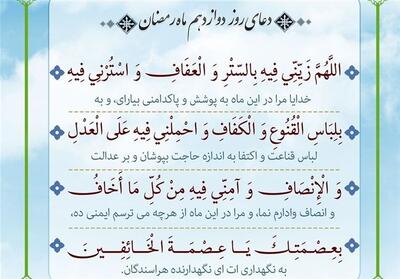 دعای روز دوازدهم ماه رمضان
اللَّهُمَّ زَيِّنِّي فِيهِ بِالسِّتْرِ وَ الْعَفَافِ وَ اسْتُرْنِي فِيهِ
خدایا مرا در این ماه به پوشش و پاکدامنی بیارای، و به
بِلِبَاسِ الْقُنُوعِ وَ الْكَفَافِ وَ احْمِلْنِي فِيهِ عَلَى الْعَدْلِ
لباس قناعت و اکتفا به اندازه حاجت بپوشان و بر عدالت
وَ الْإِنْصَافِ وَ آمِنِّي فِيهِ مِنْ كُلِّ مَا أَخَافُ
و انصاف وادارم نما، و مرا در این ماه از هرچه می ترسم ایمنی ده،
بِعِصْمَتِكَ يَا عِصْمَةَ الْخَائِفِينَ
به نگهداری ات ای نگهدارنده هراسندگان.